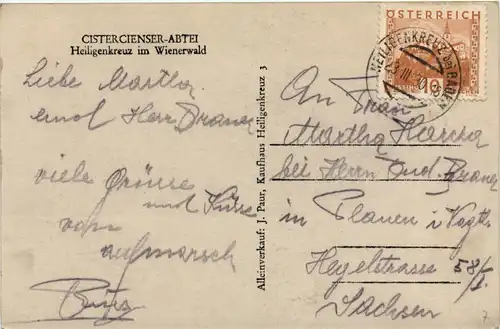 CISTERCIENSER-ABTEI
Heiligenkreuz im Wienerwald
Liebe Martha
und Herr Brauer
viele Grüsse
und Küsse
vom
aufmarsch
Alleinverkauf: J. Paur, Kaufhaus Heiligenkreuz 3
ÖSTERREICH
HEILIGENKREUZ bei BADEN
10
An Frau
Martha
bei Herrn Brauer
in Plauen i. Vogtl.
Hegelstrasse 58/I.
Sachsen
7